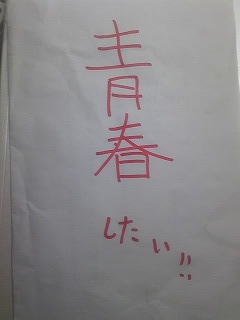 青春
したい!!